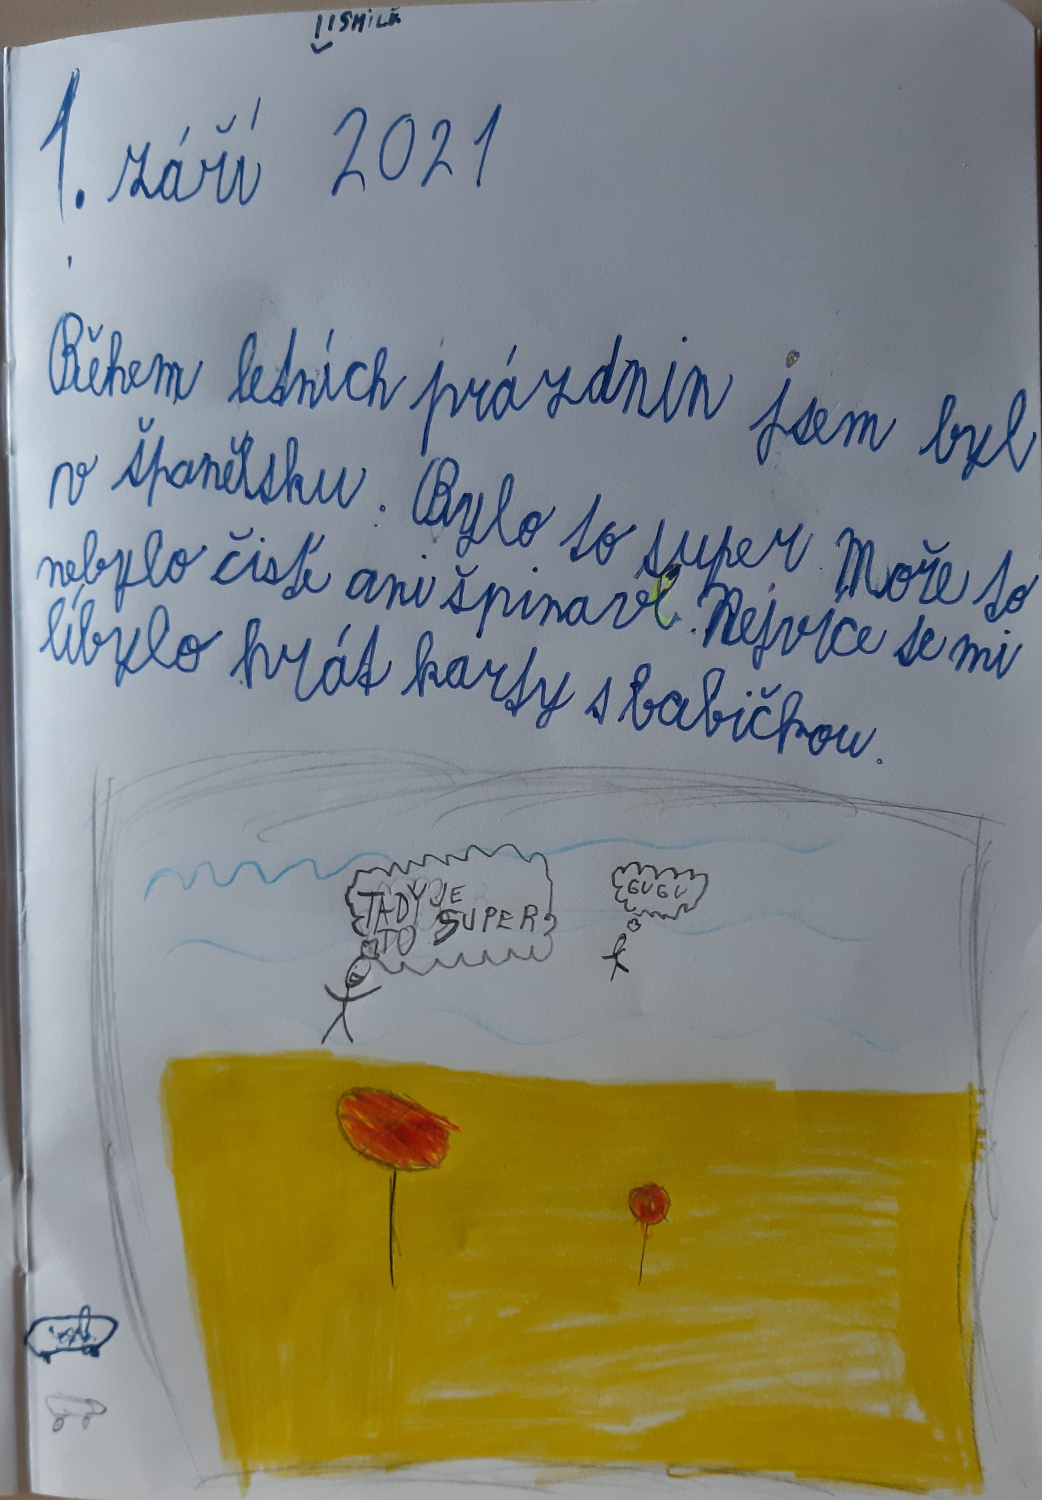 1. září 2021
Během letních prázdnin jsem byl
v španělsku. Bylo to super. Moře to
nebylo čisté ani špinavé. Nejvíce se mi
líbylo hrát karty s babičkou.
TADY JE
TO SUPER
GUGU